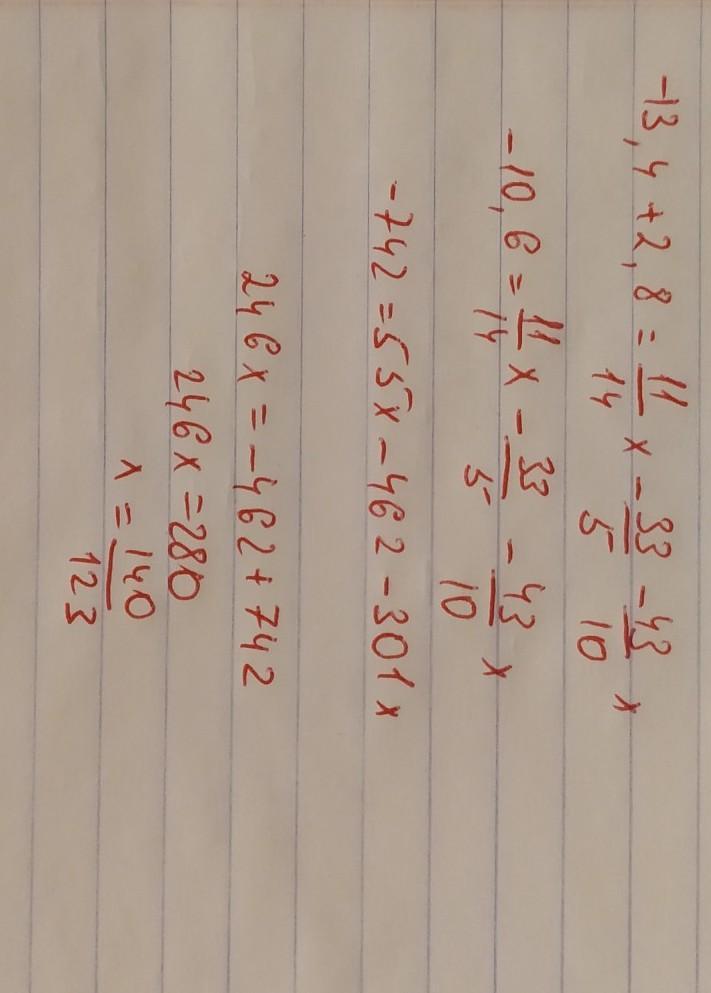 -13,4 + 2,8 = 11/14 x - 33/5 - 43/10 x
-10,6 = 11/14 x - 33/5 - 43/10 x
-742 = 55x - 462 - 301x
246x = -462 + 742
246x = 280
x = 140/123